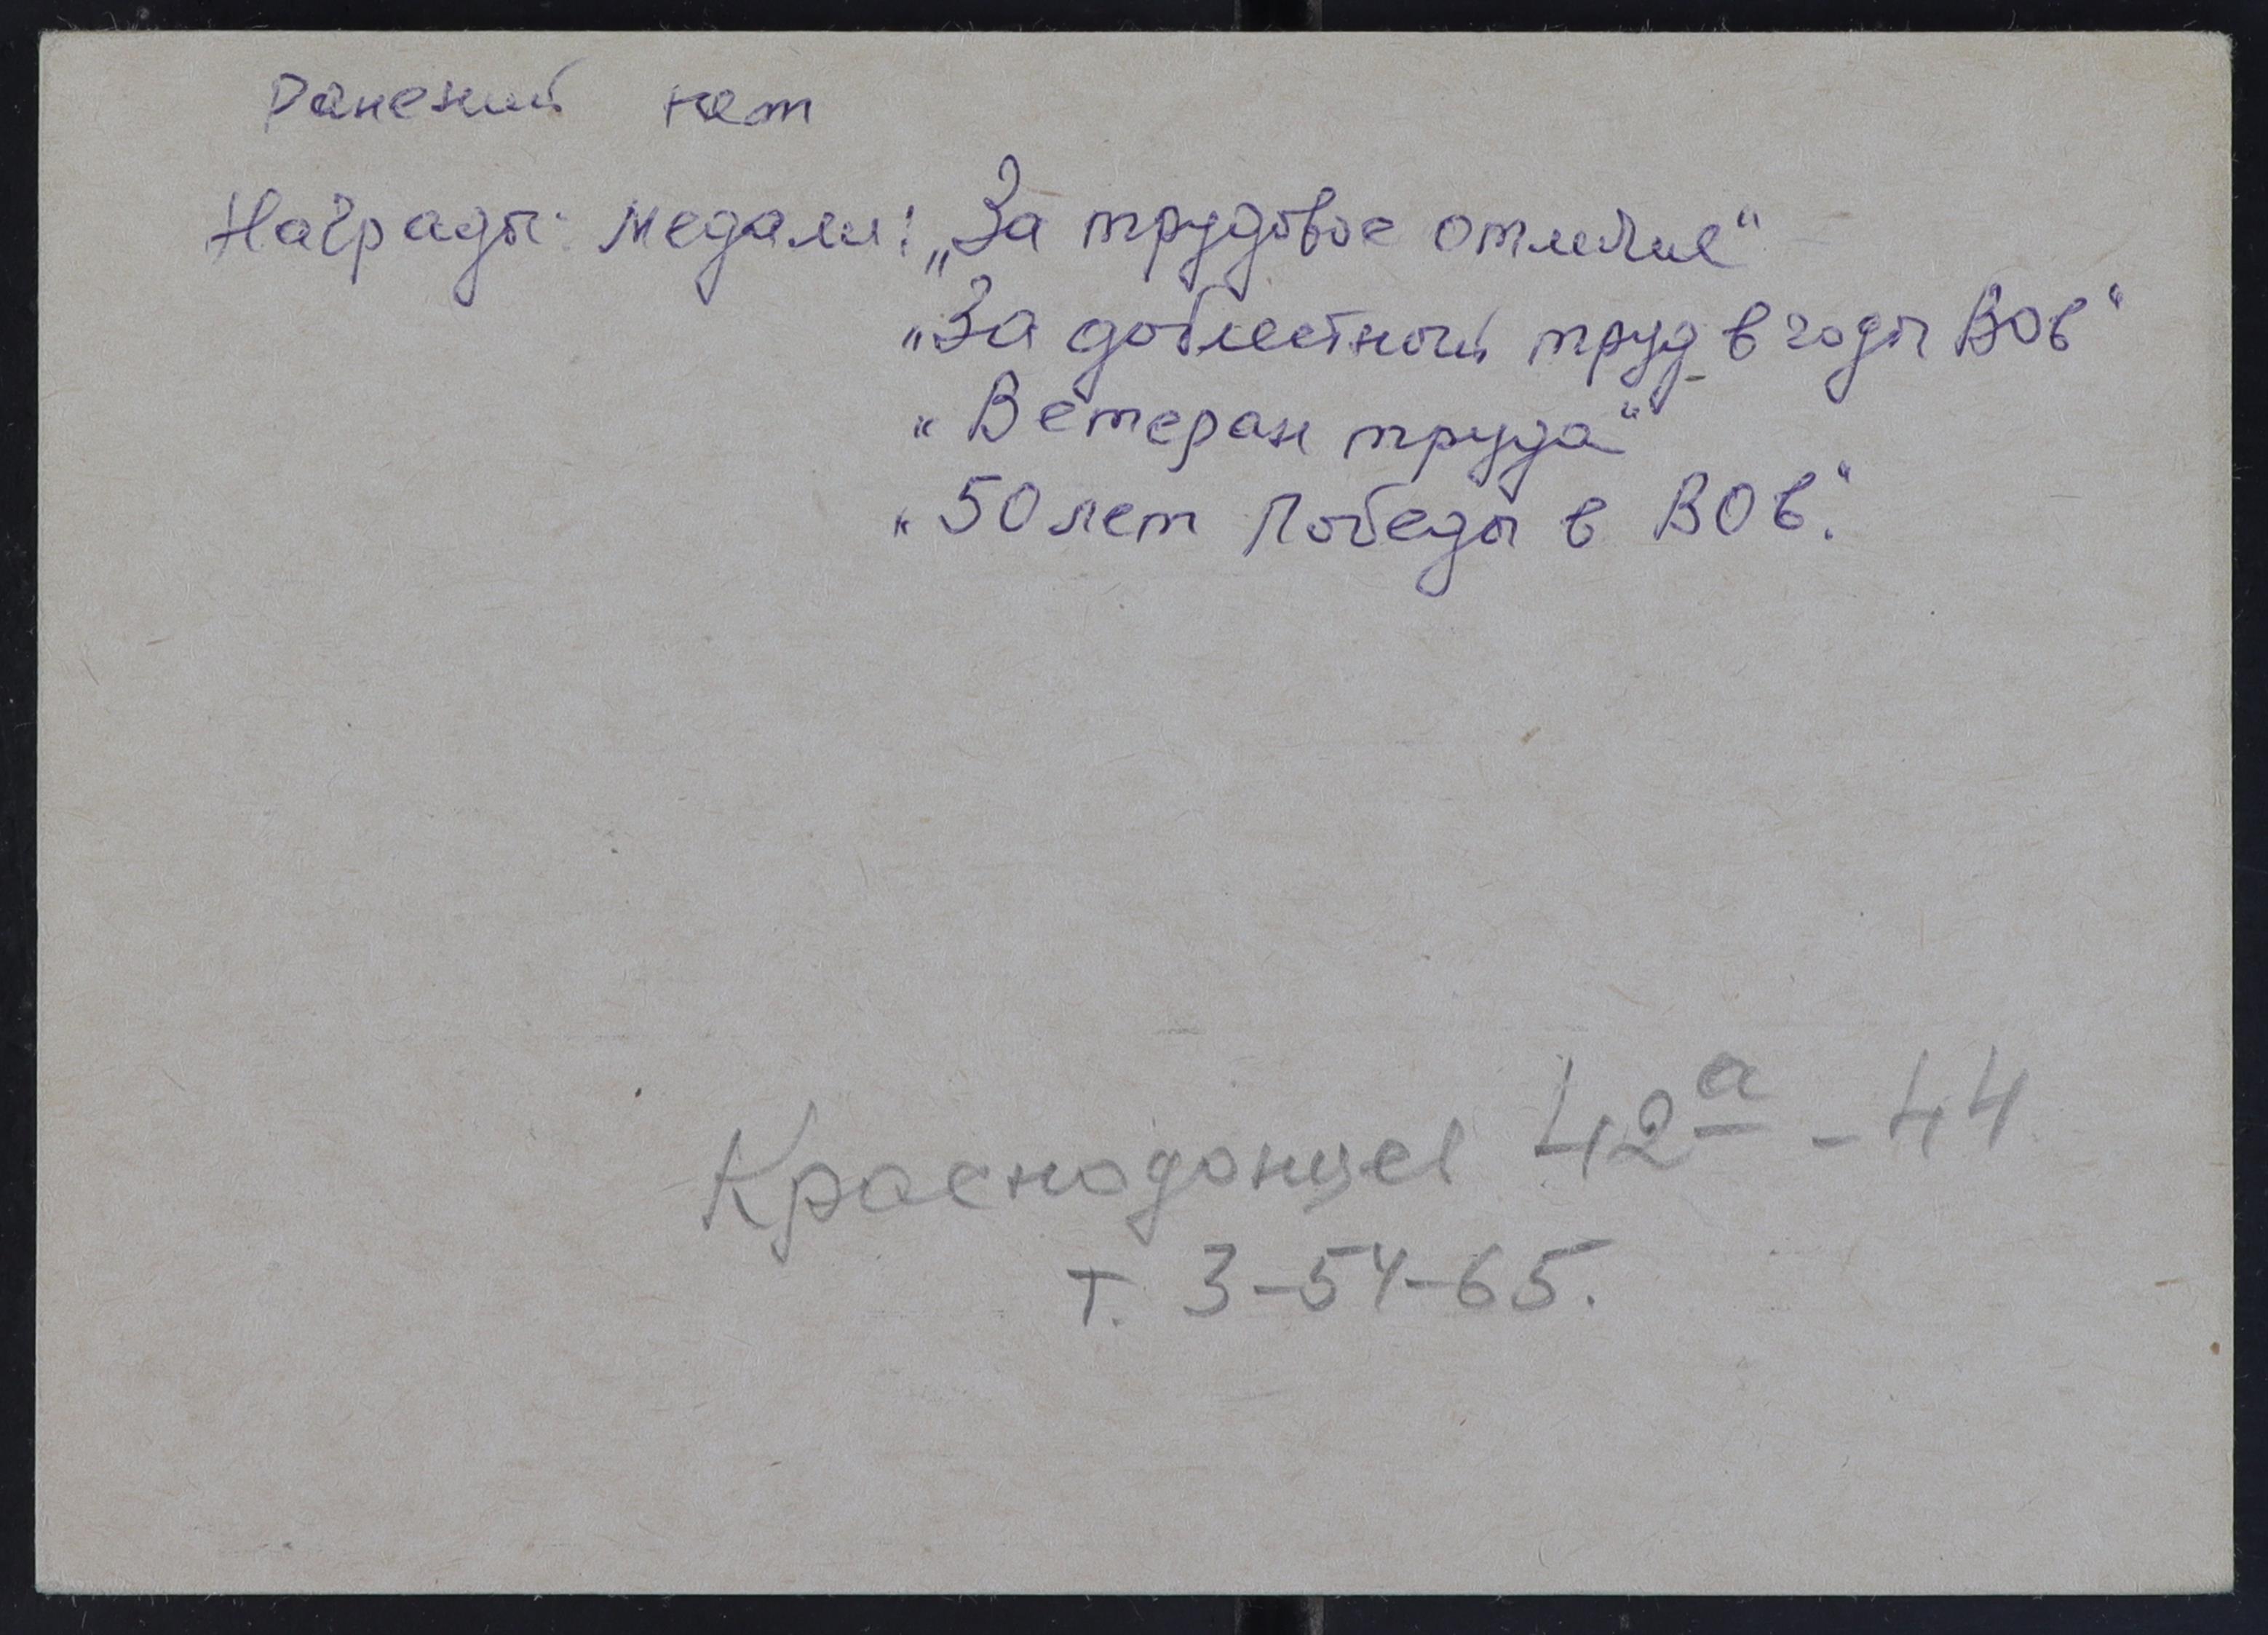 Ранений нет
Награды: медали: „За трудовое отличие“
„За доблестный труд в годы ВОв“
„Ветеран труда“
„50 лет Победы в ВОв.“
Краснодонцев 42а - 44
т. 3-54-65.